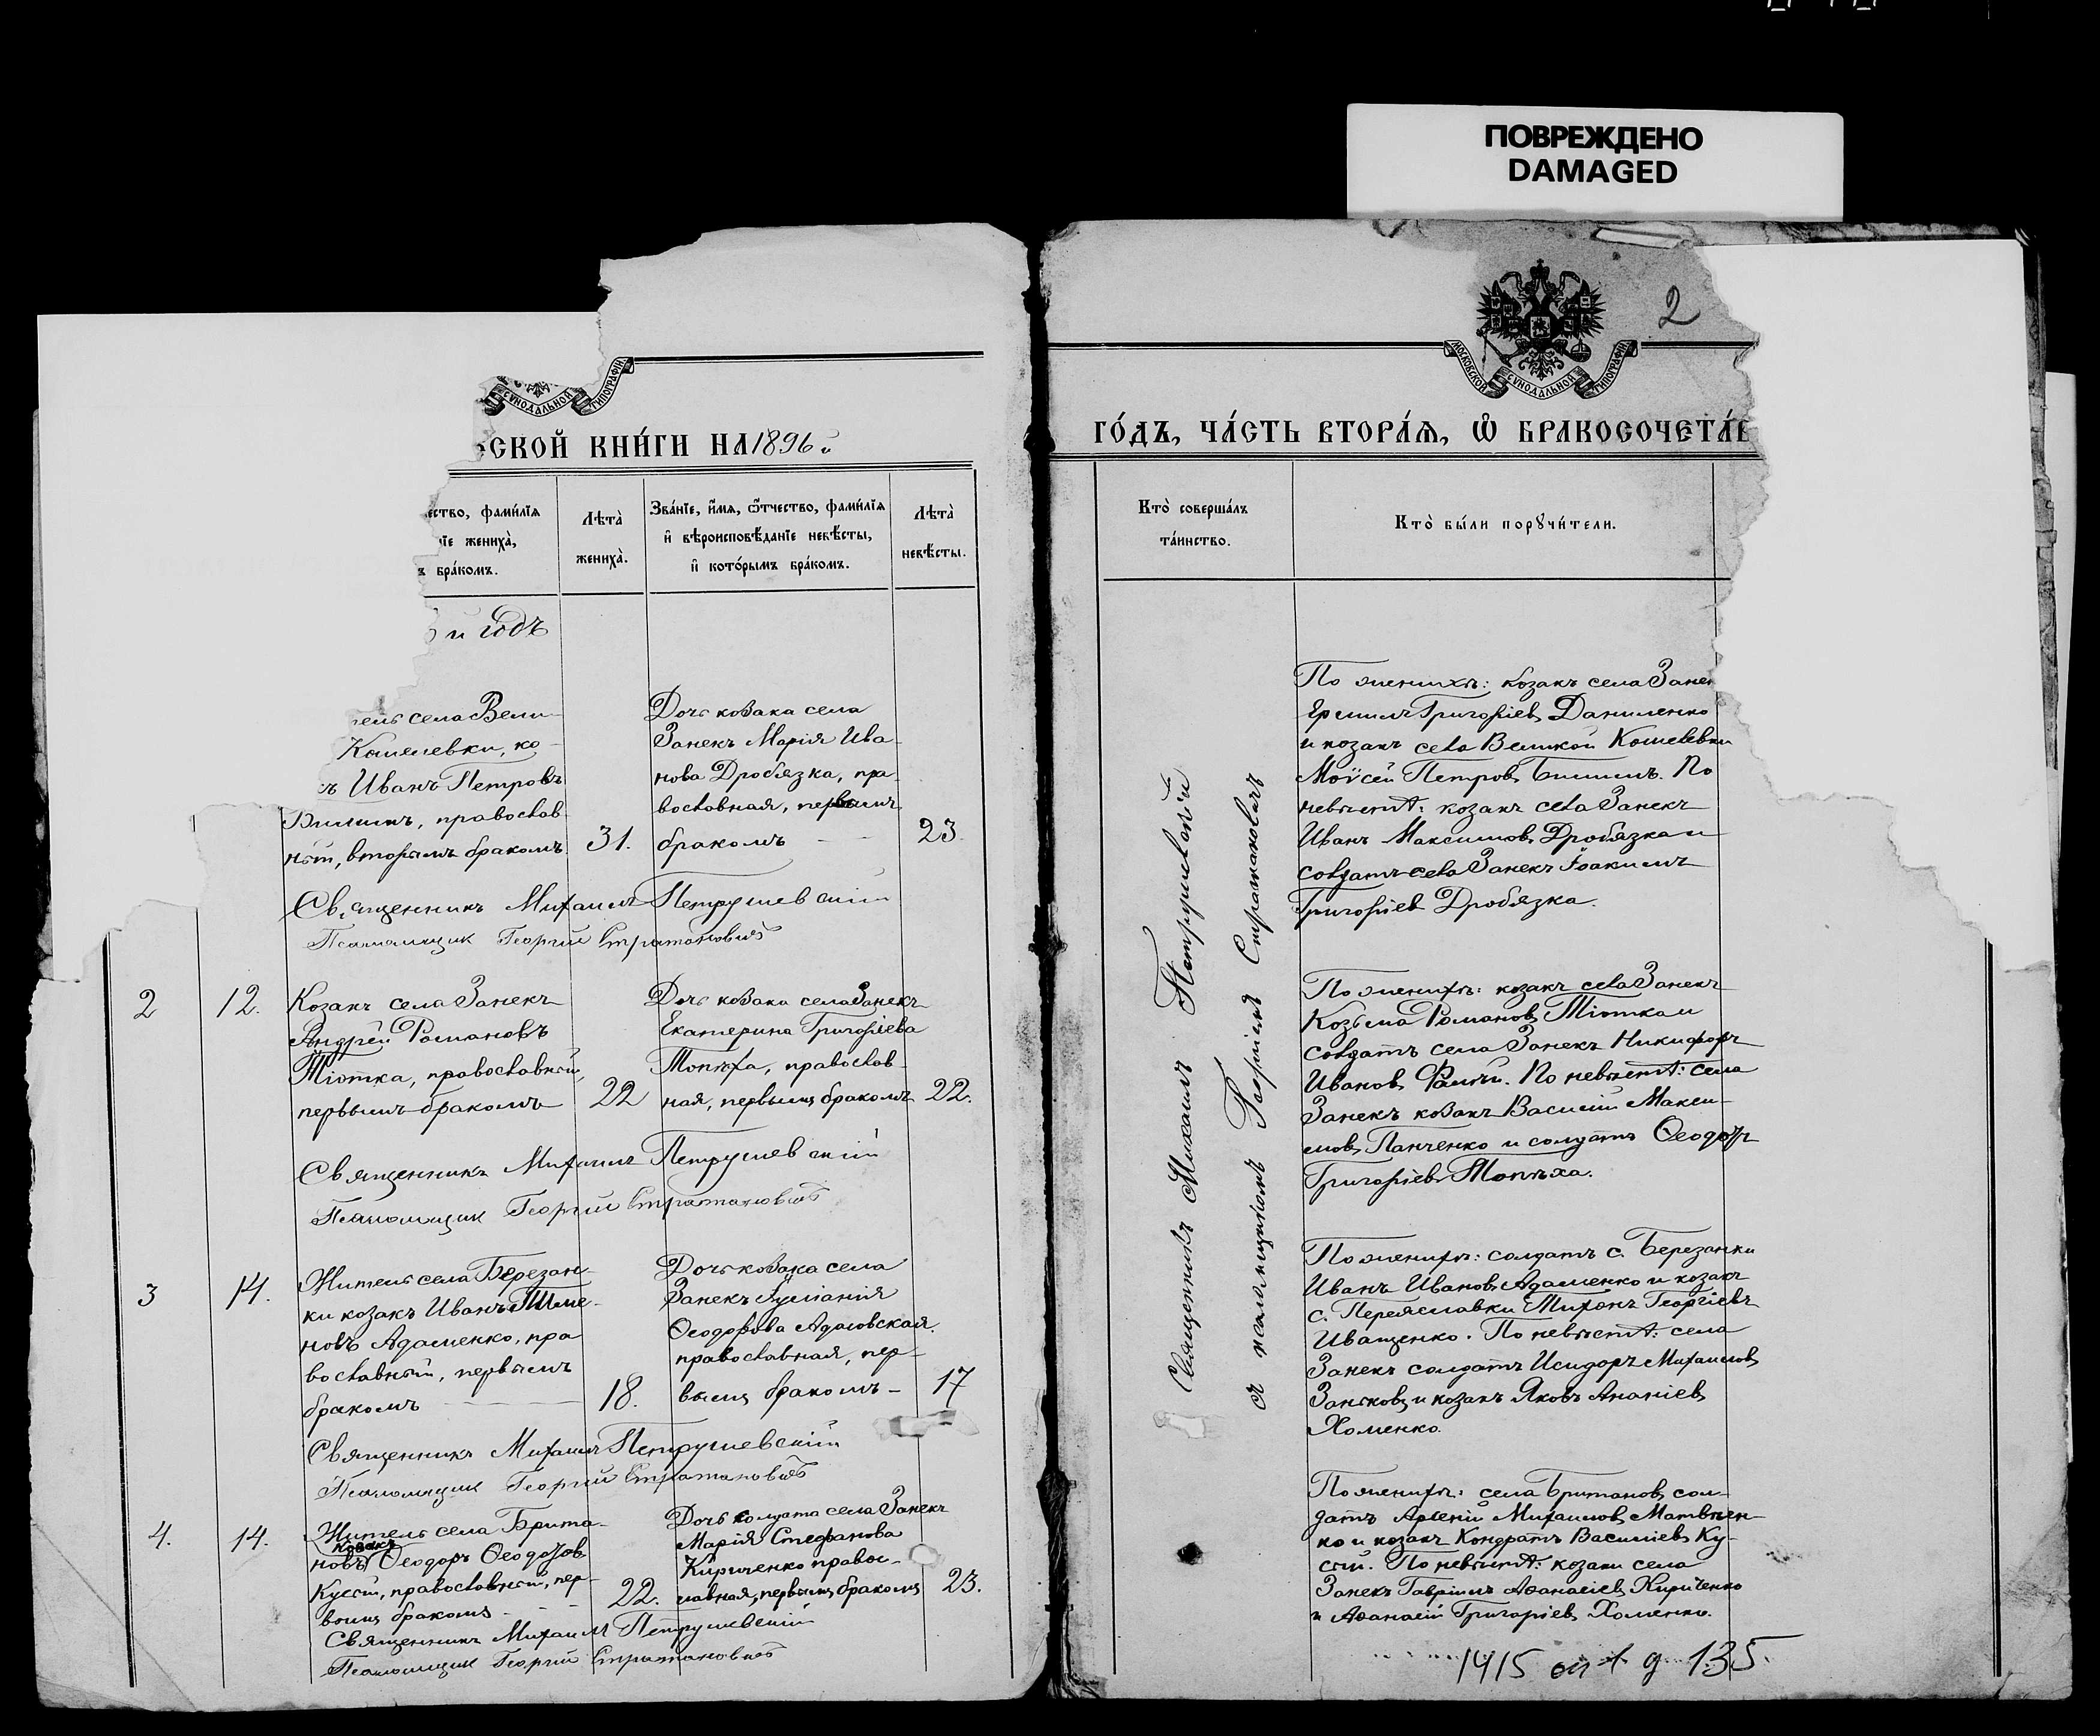 ПОВРЕЖДЕНО
DAMAGED
2
СУНОДАЛЬНОЙ ТИПОГРАФІИ.
МОСКОВСКОЙ СУНОДАЛЬНОЙ ТИПОГРАФІИ.
СКОЙ КНИ́ГИ НА 1896 й
ГО́ДЪ, ЧА́СТЬ ВТОРА́Ѧ, Ѽ БРАКОСОЧЕТА́
ество, фамі́лїѧ
їе жениха̀,
ъ бра́комъ.
Лѣта̀
жениха̀.
Зва́нїе, и҆́мѧ, ѻ҆́тчество, фамі́лїѧ
и҆ вѣроисповѣ́данїе невѣ́сты,
и҆ кото́рымъ бра́комъ.
Лѣта̀
невѣ́сты.
й годъ
тель села Вели-
Кошелевки, ко-
ъ Иванъ Петровъ
Билимъ, православ-
ный, вторымъ бракомъ 31.
Дочь козака села
Занекъ Марія Ива-
нова Дробязка, пра-
вославная, первымъ
бракомъ — 23.
Священникъ Михаилъ Петрушевскій
Псаломщик Георгій Стратановичъ
2 12. Козакъ села Занекъ
Андрей Романовъ
Тютка, православный,
первымъ бракомъ 22
Дочь козака села Занекъ
Екатерина Григоріева
Топѣха, православ-
ная, первымъ бракомъ 22.
Священникъ Михаилъ Петрушевскій
Псаломщик Георгій Стратановичъ
3 14. Житель села Березан-
ки козакъ Иванъ
новъ Адаменко, пра
вославный, первымъ
бракомъ — 18.
Дочь козака села
Занекъ Іуліанія
Ѳеодорова Адамовская.
православная, пер-
вымъ бракомъ — 17
Священникъ Михаилъ Петрушевскій
Псаломщик Георгій Стратановичъ
4. 14. Житель села Брита-
козакъ
новъ Ѳеодоръ Ѳеодоров
Куссій, православный, пер-
вымъ бракомъ - - - 22.
Дочь солдата села Занекъ
Марія Стефанова
Кириченко правос-
лавная, первымъ бракомъ 23.
Священникъ Михаилъ Петрушевскій
Псаломщик Георгій Стратановичъ
Кто̀ соверша́лъ
та́инство.
Кто̀ бы́ли порꙋчи́тели.
Священникъ Михаилъ Петрушевскій
съ псаломщикомъ Георгіемъ Стратановичъ
По женихѣ: козакъ села Занек
Ермилъ Григоріевъ Даниленко
и козакъ села Великой Кошелевки
Моѵсей Петровъ Билимъ. По
невѣстѣ: козакъ села Занекъ
Иванъ Максимовъ Дробязка и
солдатъ села Занекъ Іоакимъ
Григоріевъ Дробязка.
По женихѣ: козакъ села Занекъ
Козьма Романовъ Тютка и
солдатъ села Занекъ Никифоръ
Ивановъ. По невѣстѣ: села
Занекъ козакъ Василій Макси-
мовъ Панченко и солдатъ Ѳеодоръ
Григоріевъ Топѣха.
По женихѣ: солдатъ с. Березанки
Иванъ Ивановъ Адаменко и козакъ
с. Переяславки Тихонъ Георгіевъ
Иващенко. По невѣстѣ: села
Занекъ солдатъ Исидоръ Михаиловъ
Заньковъ и козакъ Яковъ Ананіевъ
Хоменко.
По женихѣ: села Британовъ сол-
датъ Арсеній Михаиловъ Матвѣен-
ко и козакъ Кондратъ Василіевъ Ку-
сій. По невѣстѣ: козаки села
Занекъ Гавріилъ Аѳанасіевъ Кириченко
и Аѳанасій Григоріевъ Хоменко.
1415 оп 1 д 135.